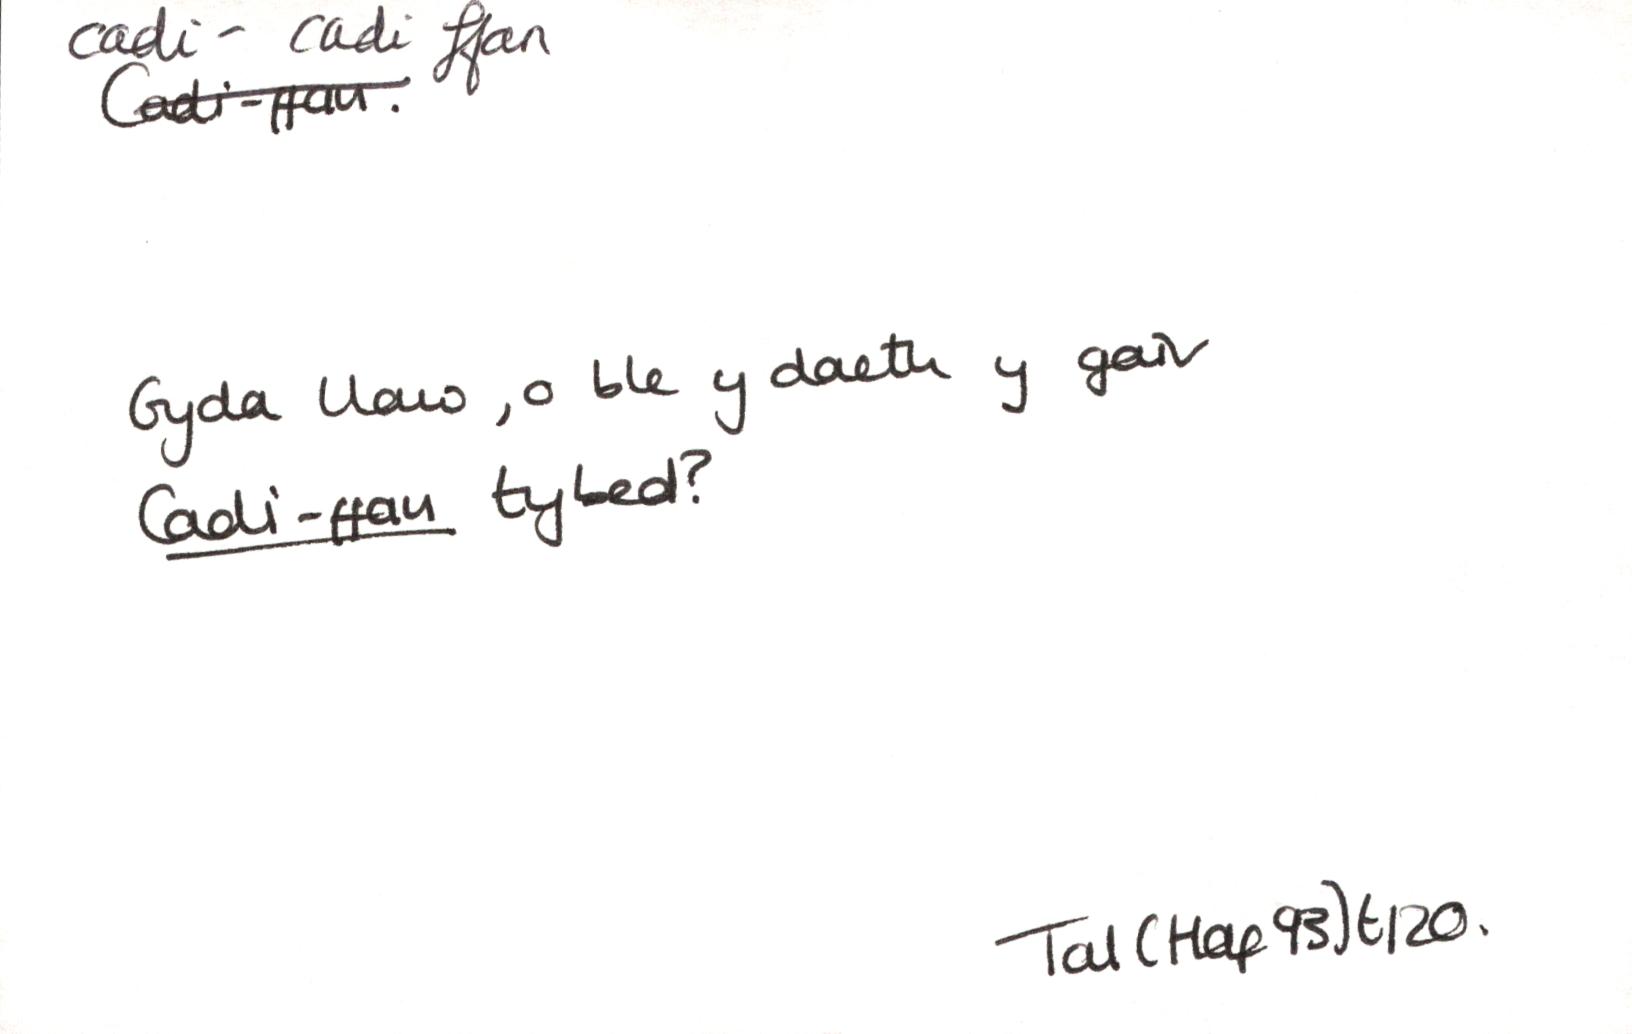 cadi - cadi ffan
Cadi-ffan.
Gyda llaw, o ble y daeth y gair
Cadi-ffan tybed?
Tal (Haf 93) t120.